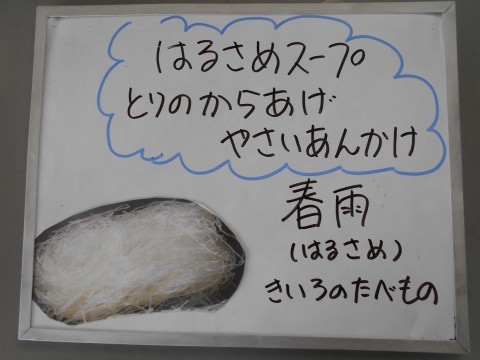 はるさめスープ
とりのからあげ
やさいあんかけ
春雨
(はるさめ)
きいろのたべもの